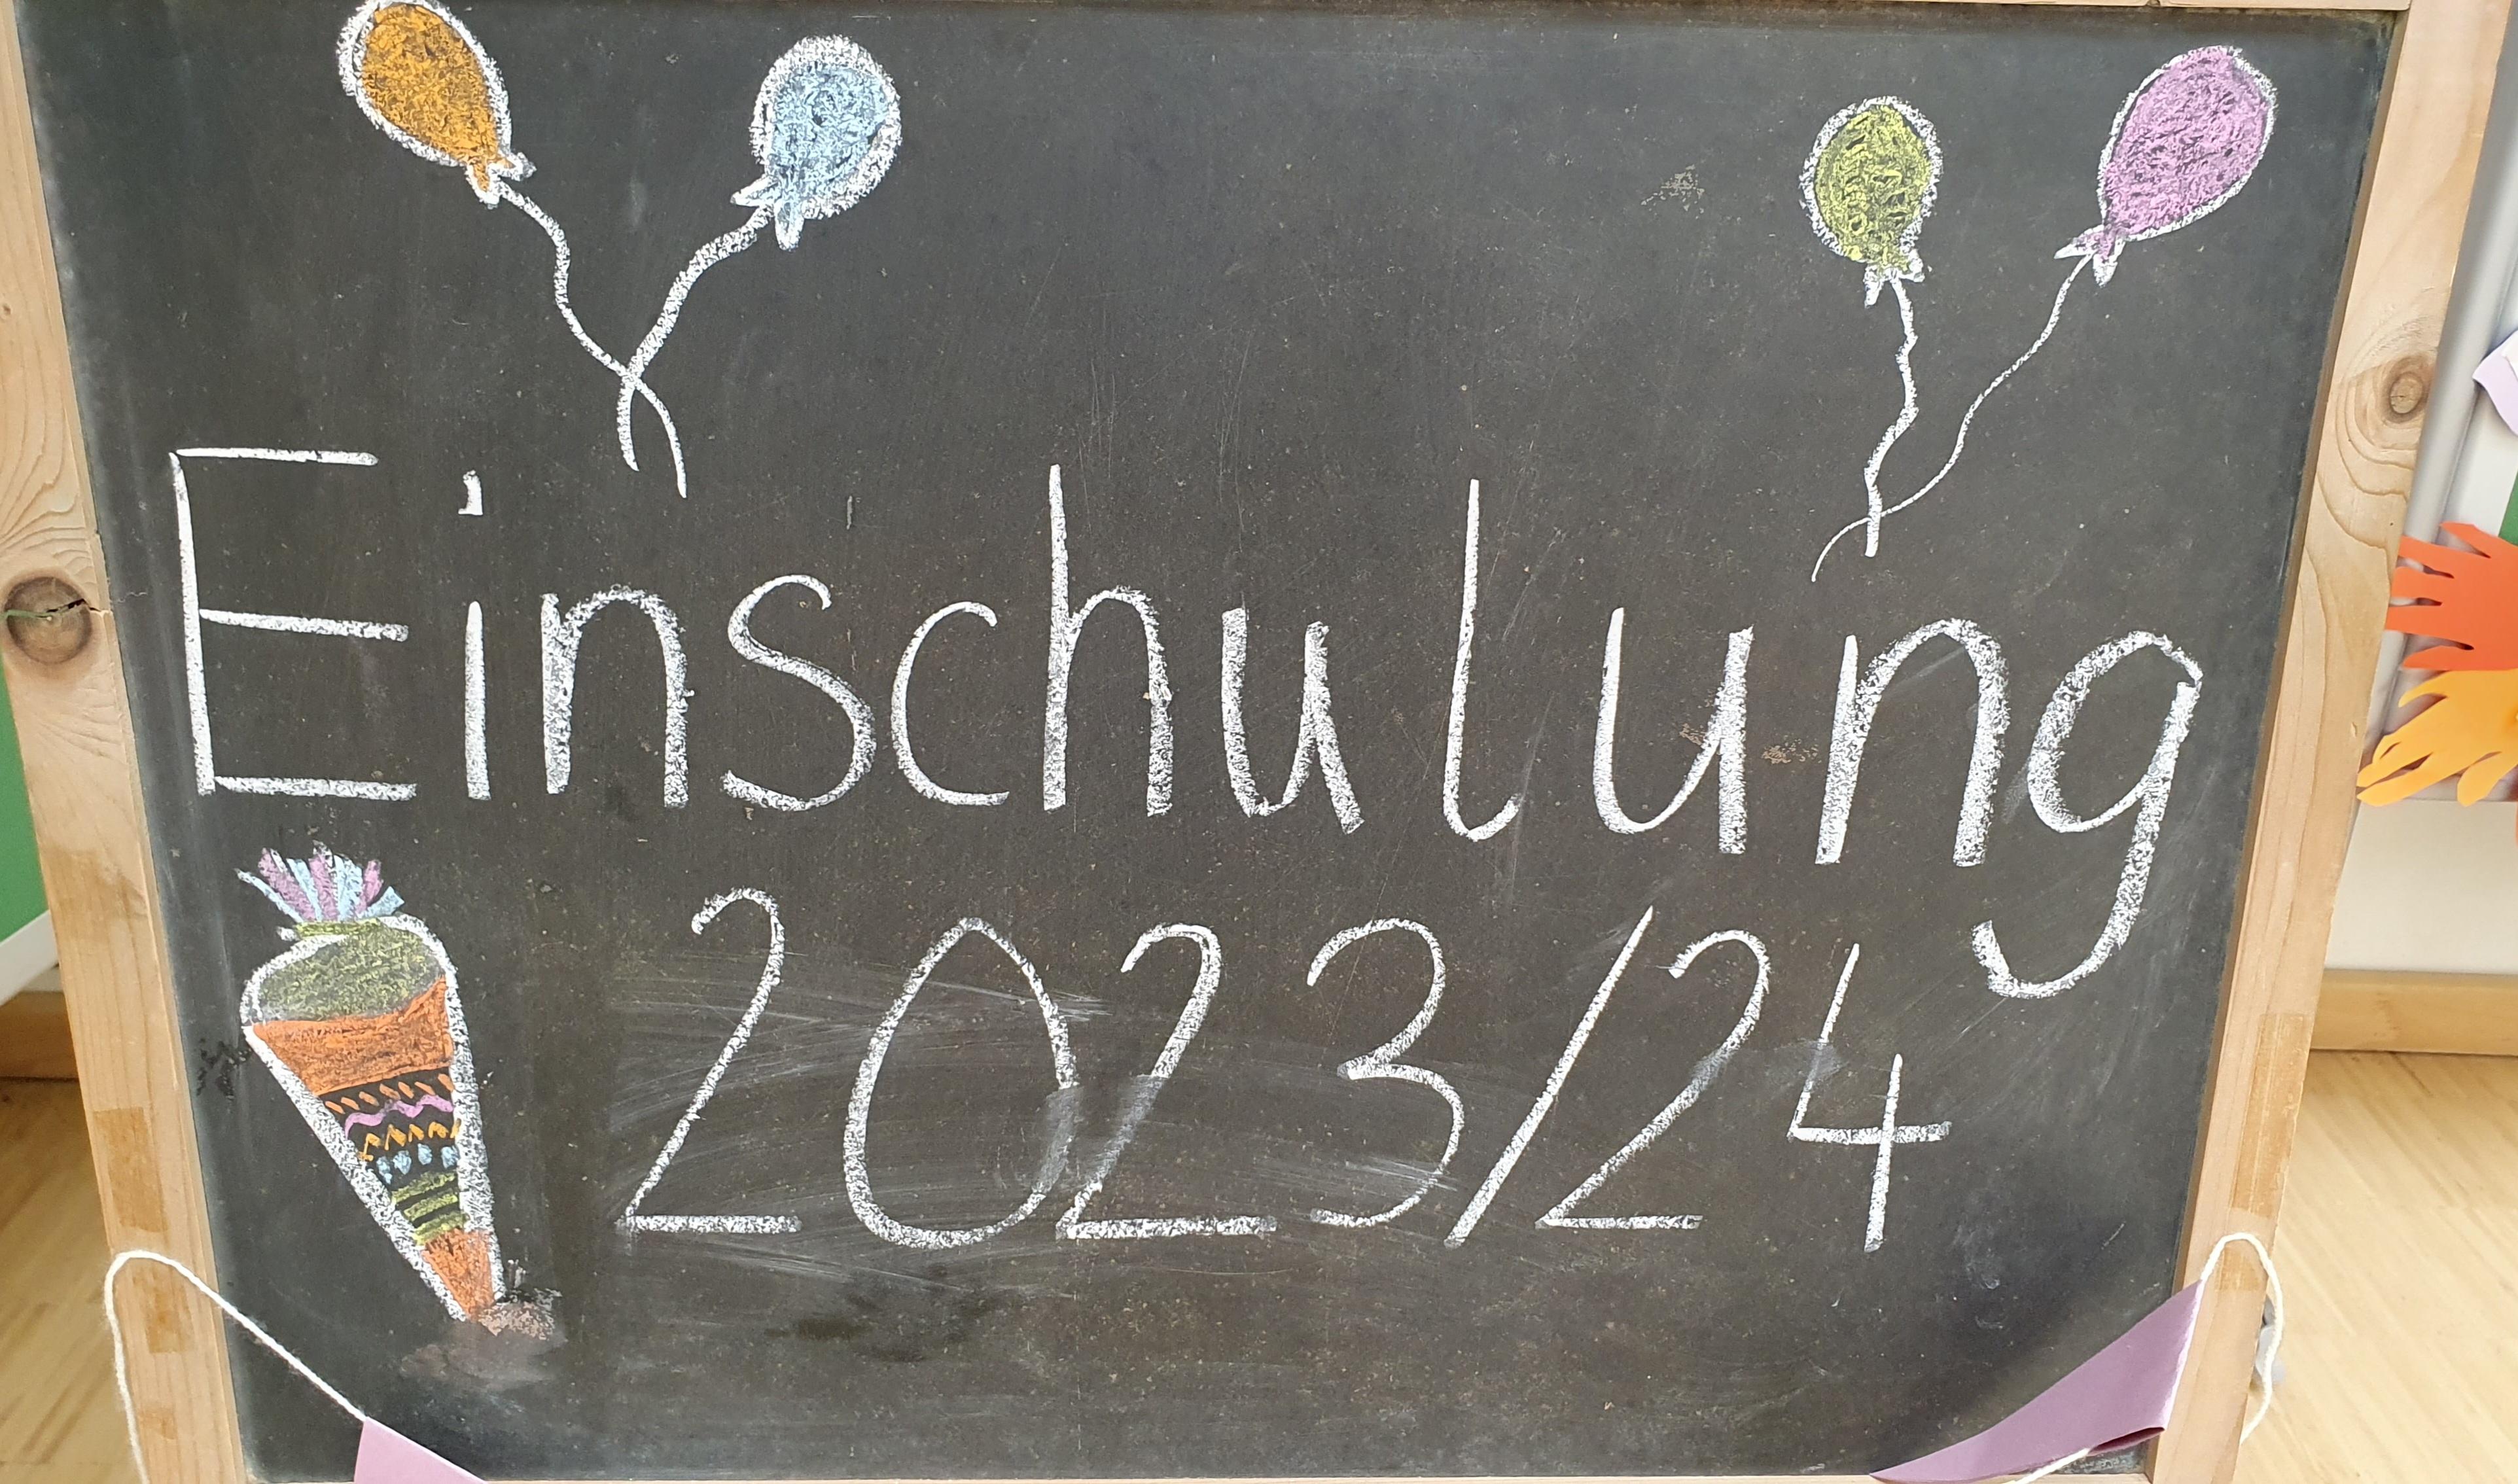 Einschulung
2023/24